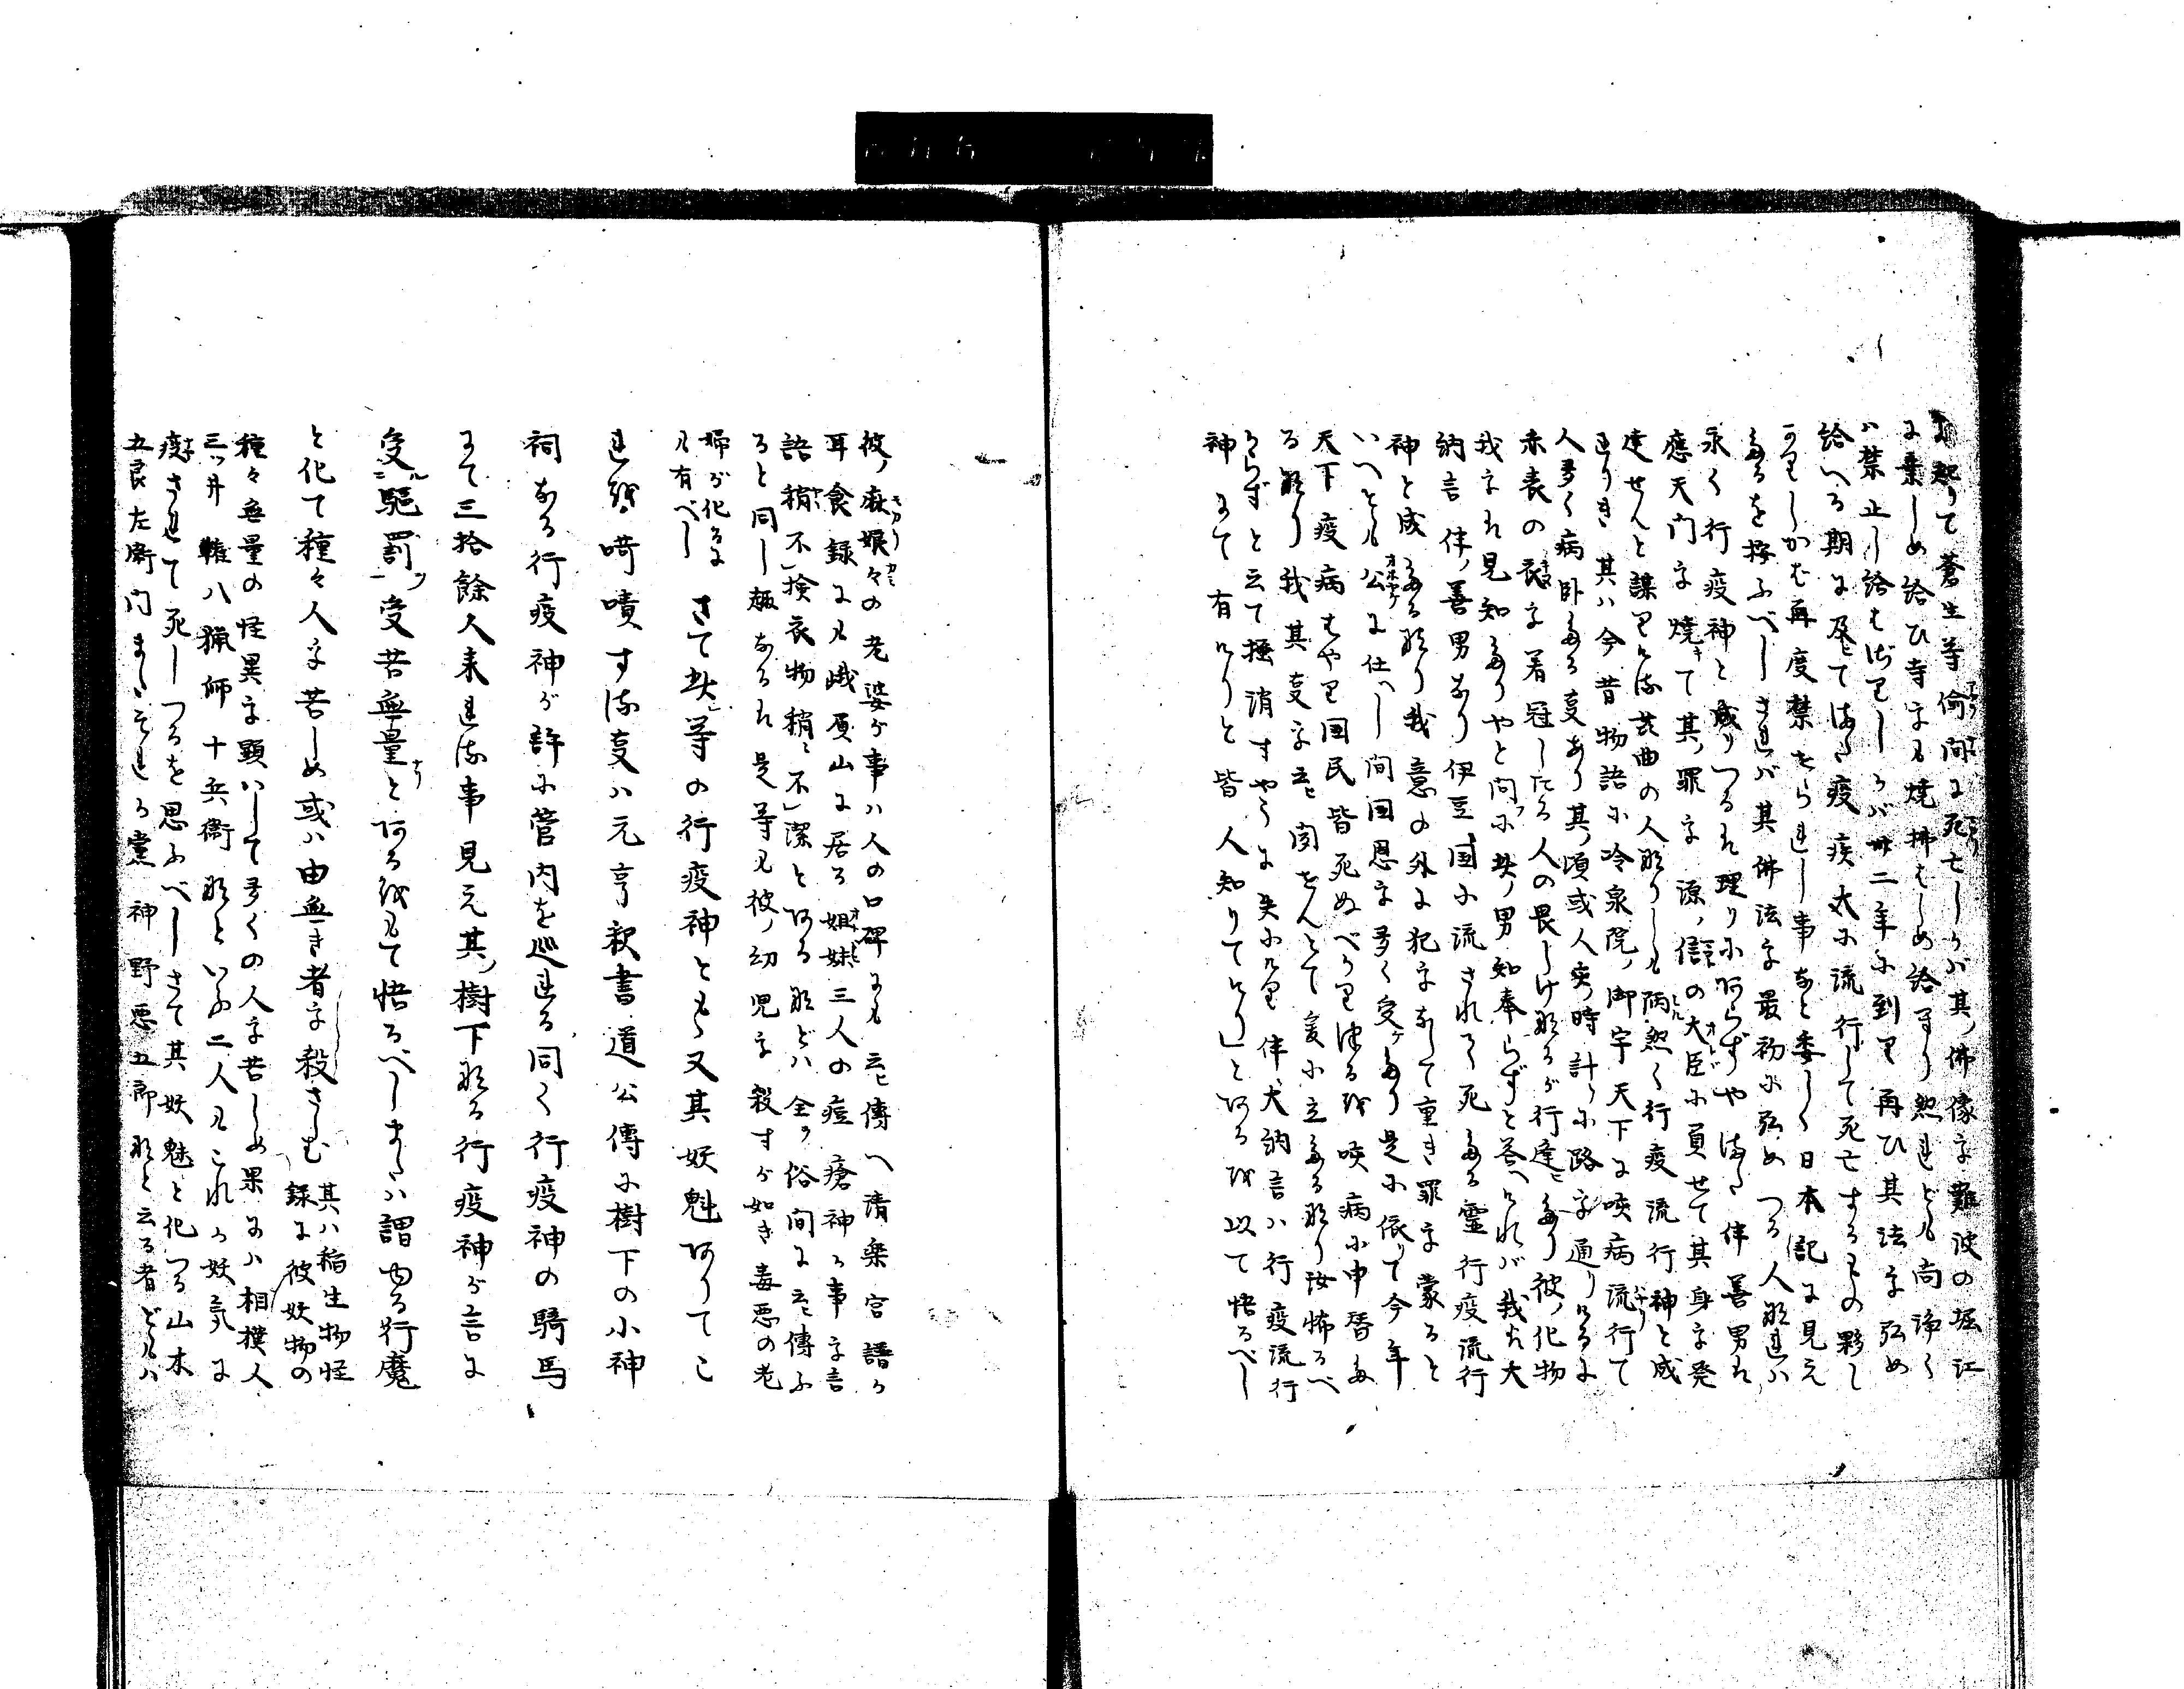 に起りて蒼生等偷間に死亡しかば其ノ佛像を難波の堀江
に棄しめ給ひ寺をも焼拂はしめ給へり然れども尚諍く
ハ禁止し給はざりしかば卅二年に到り再ひ其法を弘め
給へる期に及て流く疫疾大に流行して死亡するもの夥し
かりしかば再度禁せられし事など委しく日本記に見え
たるを按ふべしされバ其佛法を最初に弘めつる人なれバ
永く行疫神と成りつるも理りにあらずやまた伴善男も
應天門を焼て其ノ罪を源ノ信の大臣に負せて其身を発
達せんと謀りける姦曲の人なりしも㒳然く行疫流行神と成
れりき其ハ今昔物語に冷泉院ノ御宇天下に咳病流行て
人多く病臥たる事あり其ノ頃或人夾時計りに路を通りけるに
赤表の衣を着冠したる人の畏しけなるが行逢たり彼ノ化物
我をは見知たりやと問ふに此ノ男知奉らずと荅へければ我は大
納言伴ノ善男なり伊豆国に流されて死たる靈行疫流行
神と成たるなり我意の外に犯をなして重き罪を蒙ると
いへとも公に仕へし間国恩を多く受たり是に依りて今年
天下疫病はやり国民皆死ぬべかりけるを咳病に申替た
るなり我其事を云ヒ聞せんとて爰に立たるなり汝怖るべ
からずと云て掻消すやうに失にけり伴ノ大納言ハ行疫流行
神にて有けりと皆人知りてけりとあるを以て悟るべし
彼ノ麻娘々の老婆が事ハ人の口碑にも云ヒ傳へ清樂宮語が
耳食録にも峨眉山に居る姐妹三人の痘瘡神が事を言
語稍不検衣物稍不潔とあるなどハ全ク俗間に云ヒ傳ふ
ると同し趣なるも是等も彼ノ幼児を殺すが如き毒悪の老
婦が化るにも有べし さて此ノ等の行疫神ともゝ又其妖魁ありてこ
れを啨嘖する事ハ元亨釈書道公傳に樹下の小神
祠なる行疫神が許に管内を巡れる同く行疫神の騎馬
にて三拾餘人来れる事見え其ノ樹下なる行疫神が言に
受ニ駈罰ヲ一受苦無量とあるをもて悟るべしまたハ謂ゆる行魔
と化て種々人を苦しめ或ハ由無き者を殺さしむ 其ハ稲生物怪録に彼妖物の
種々無量の怪異を顕ハして多くの人を苦しめ果にハ相撲人
三ツ井 權八猟師十兵衛などいふ二人もこれが妖氣に
疫されて死しつるを思ふべしさて其妖魅と化つる山本
五良左衛門また(それが党)神野悪五郎などと云る者どもハ